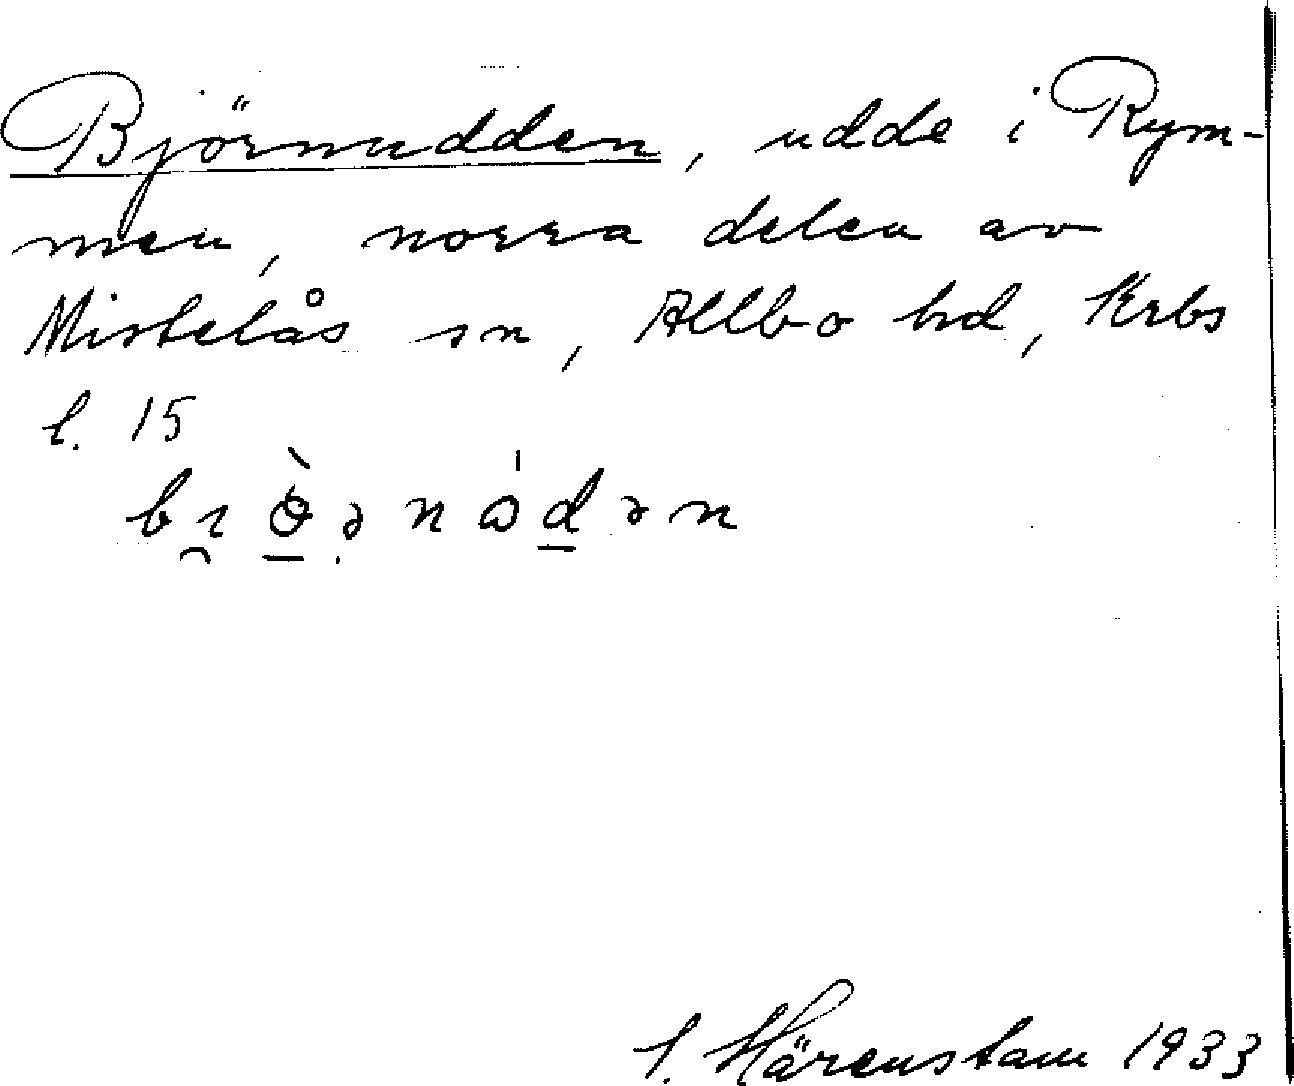 Björnudden, udde i Rym-
men, norra delen av
Mistelås sn, Allbo hd, Krbs
l. 15
Härenstam 1933